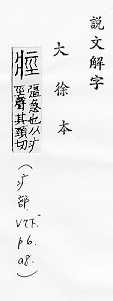 說文解字
大徐本
痙
彊急也从疒
巠聲其頸切
(疒部
V7下
p6.
a8.)